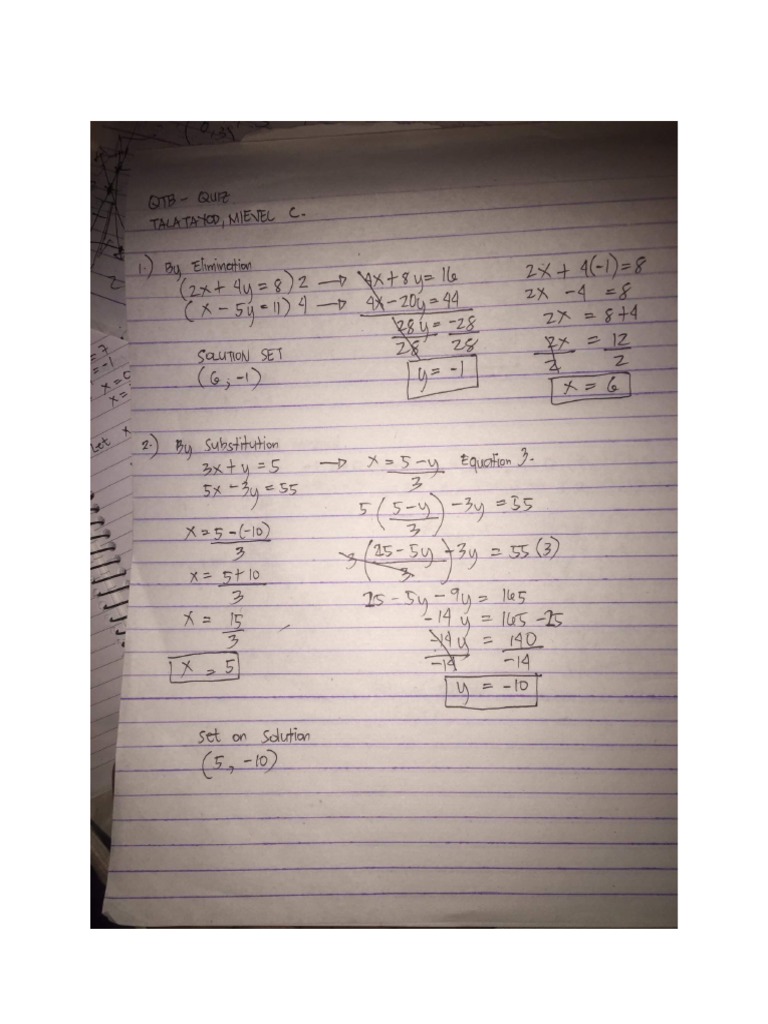 QTB - QUIZ
TALATAYOD, MIEVEL C.
1.) By Elimination
(2x + 4y = 8) 2 → 4x + 8y = 16
(x - 5y = 11) 4 → 4x - 20y = 44
28y = -28
28 28
y = -1
2x + 4(-1) = 8
2x - 4 = 8
2x = 8+4
2x = 12
2 2
x = 6
SOLUTION SET
(6, -1)
2.) By Substitution
3x + y = 5 → x = 5 - y Equation 3.
3
5x - 3y = 55
5 (5-y) - 3y = 55
3
3 (25 - 5y) - 3y = 55 (3)
3
25 - 5y - 9y = 165
-14y = 165 - 25
-14y = 140
-14 -14
y = -10
x = 5 - (-10)
3
x = 5 + 10
3
x = 15
3
x = 5
Set on Solution
(5, -10)
Let x